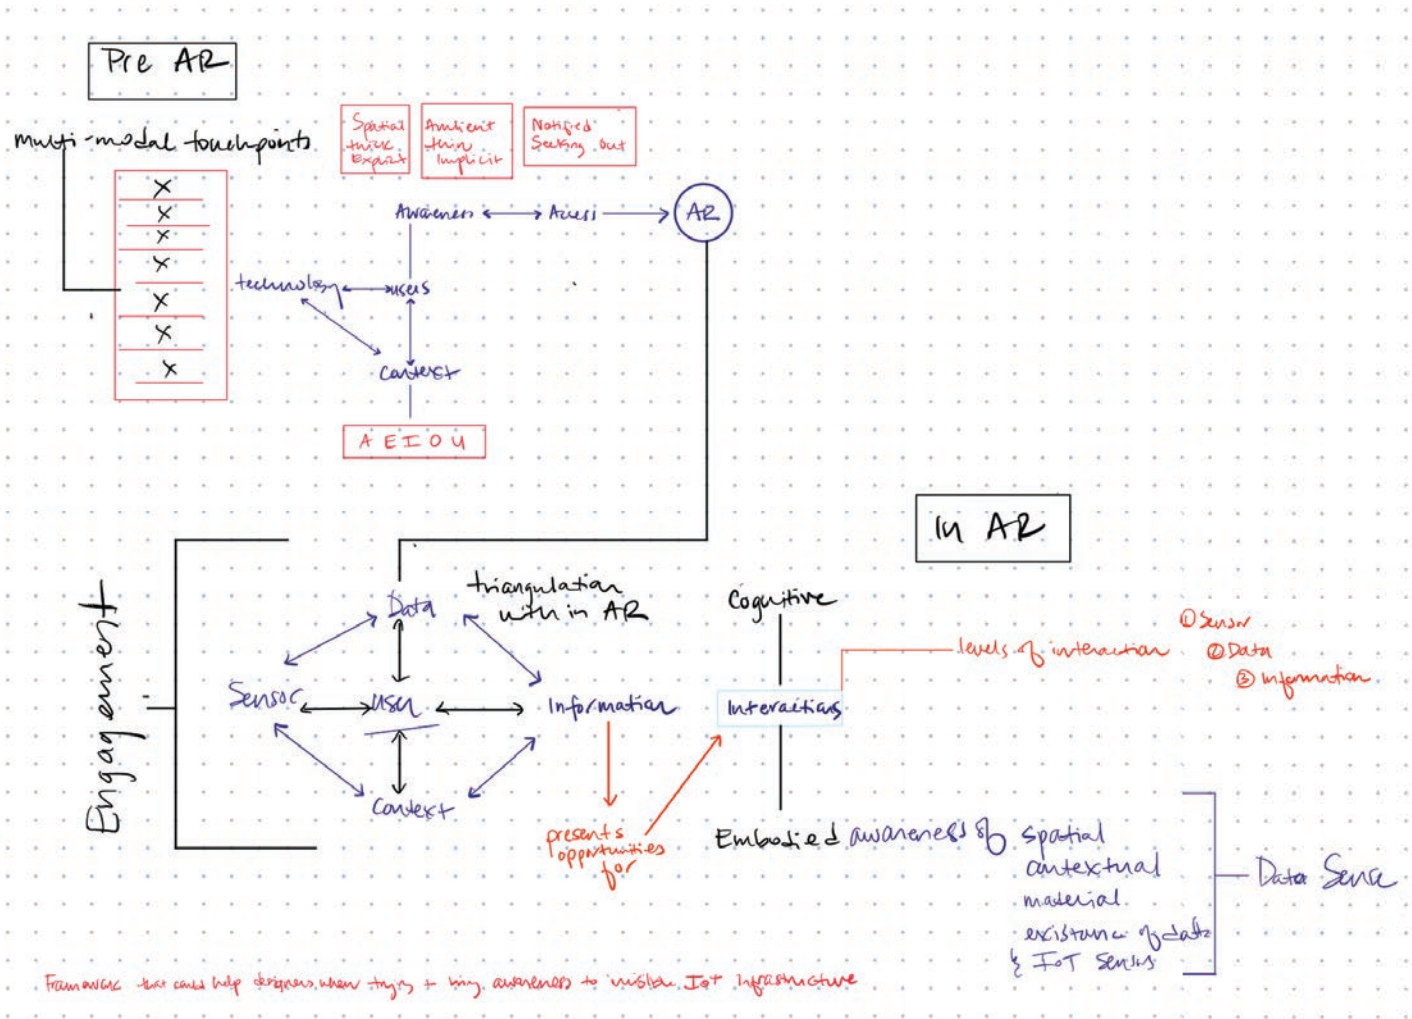 Pre AR
multi-modal touchpoints
X
X
X
X
X
X
X
Spatial
thick
Explicit
Ambient
thin
Implicit
Notified
Seeking out
Awareness
Access
AR
technology
users
Context
A E I O U
In AR
Engagement
Data
triangulation
with in AR
Sensor
user
Information
Context
presents
opportunities
for
Cognitive
Interactions
levels of interaction
① Sensor
② Data
③ Information
Embodied awareness of spatial
contextual
material
existance of data
& IoT Sensors
Data Sense
Framework that could help designers when trying to bring awareness to invisible IoT Infrastructure